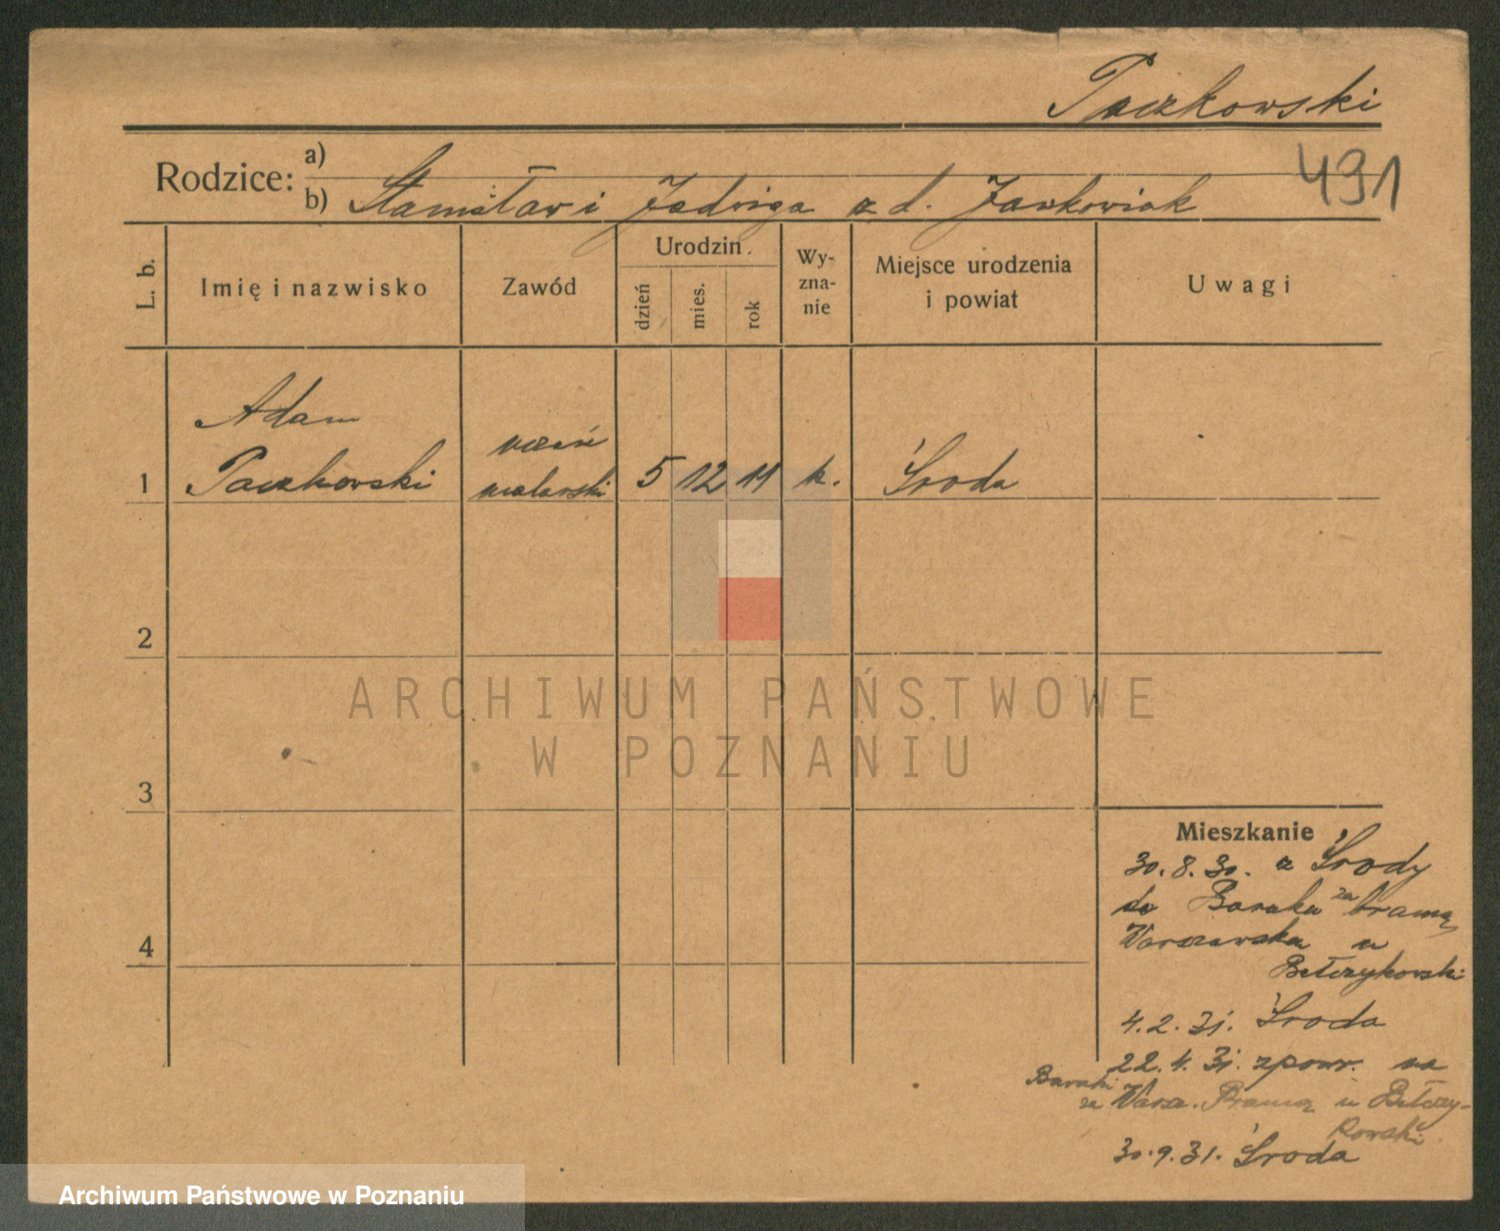 Paczkowski
491
Rodzice: a)
b) Stanisław i Jadwiga z d. Jankowiak
L. b.
Imię i nazwisko
Zawód
Urodzin.
dzień
mies.
rok
Wy-
zna-
nie
Miejsce urodzenia
i powiat
Uwagi
Adam
1 Paczkowski
uczeń
malarski
5 12 11 k. Środa
2
ARCHIWUM PAŃSTWOWE
W POZNANIU
3
4
Mieszkanie
30.8.30. z Środy
do Baraku za bramą
Warszawską u
Bełczykowski
4.2.31. Środa
22.4.31. zpowr. na
Baraki za Warsz. Bramą u Bełczy-
kowski
30.9.31. Środa
Archiwum Państwowe w Poznaniu